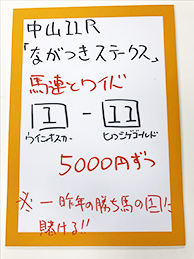 中山11R
「ながつきステークス」
馬連とワイド
1 - 11
ウインオスカー ヒロシゲゴールド
5000円ずつ
※一昨年の勝ち馬の1に
賭ける!!